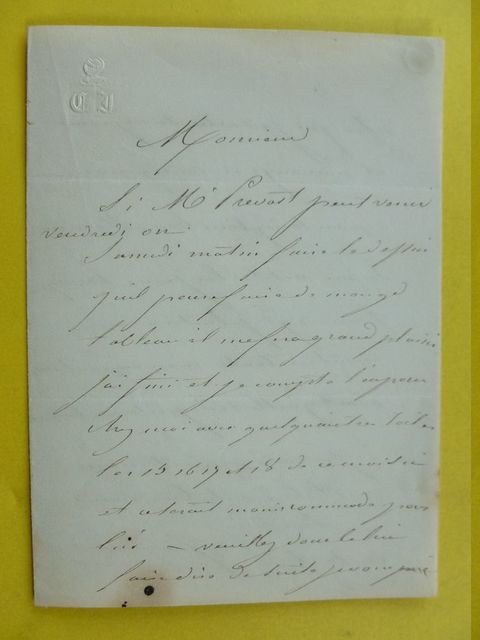 Monsieur
Si Mr Prevost peut venir
vendredi ou
Samedi matin faire le dessin
qu'il pense faire de mon gd
tableau il me fera grand plaisir
j'ai fini et je compte l'exposer
chez moi avec quelques autres toiles
les 15 16 17 et 18 de ce mois ci
et ce serait moins commode pour
lui – veuillez donc le lui
faire dire de suite je vous prie